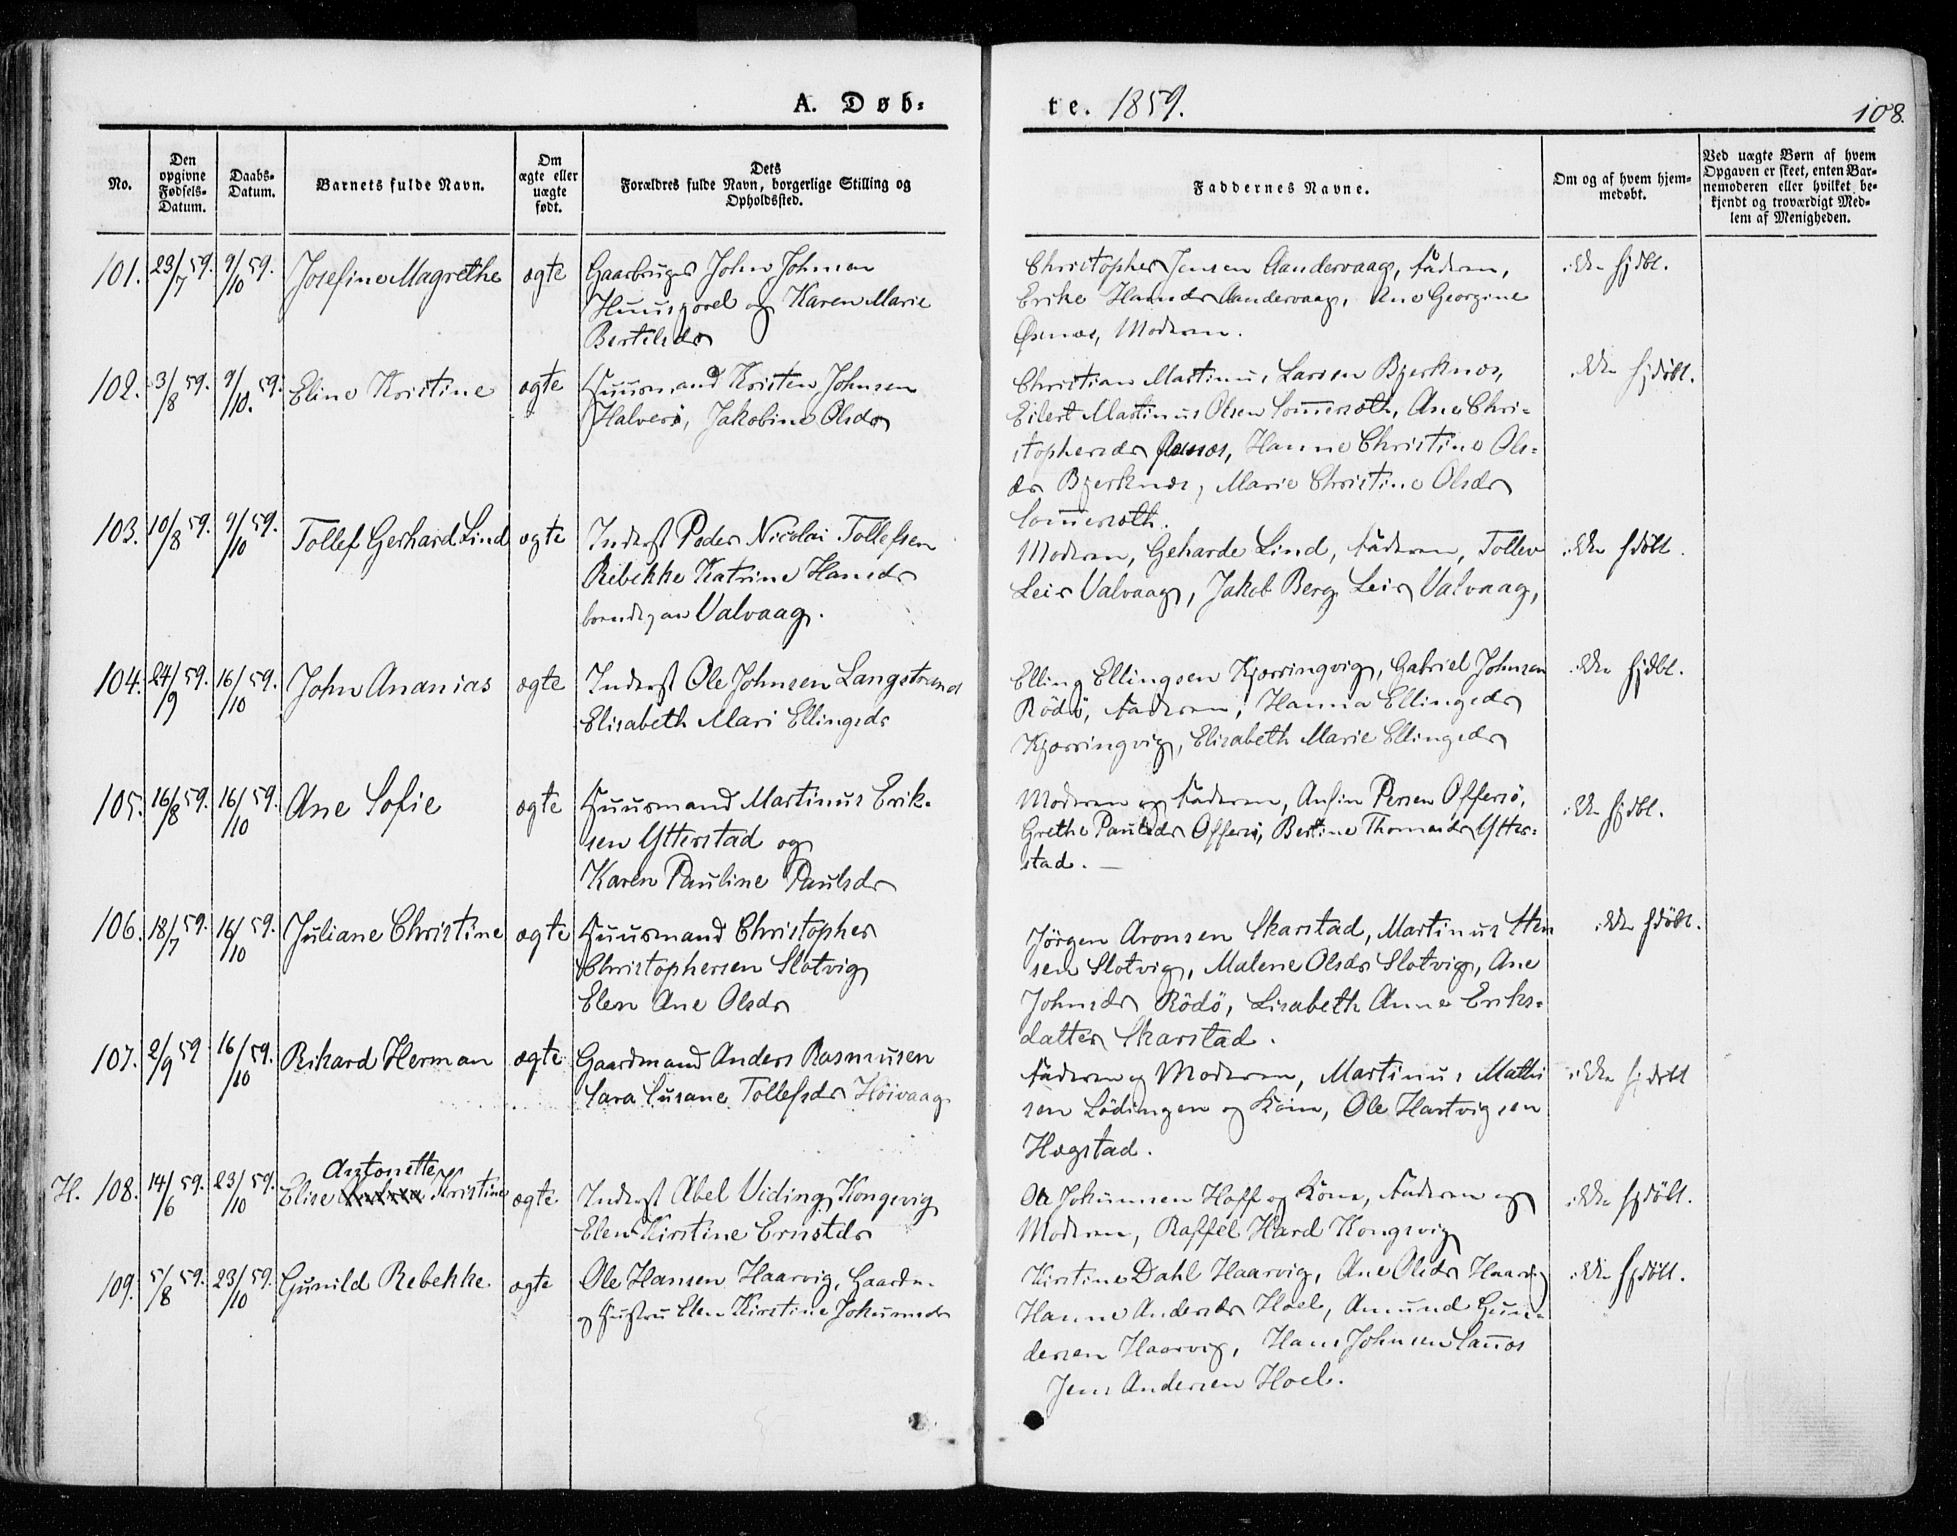 A. Døb-
te. 1859.
108.
No.
Den opgivne Fødsels-Datum.
Daabs-Datum.
Barnets fulde Navn.
Om ægte eller uægte født.
Dets Forældres fulde Navn, borgerlige Stilling og Opholdssted.
Faddernes Navne.
Om og af hvem hjem-medøbt.
Ved uægte Børn af hvem Opgaven er skeet, enten Bar-nemoderen eller hvilket be-kjendt og troværdigt Med-lem af Menigheden.
101. 23/7 59. 9/10 59. Josefine Magrethe ægte
Gaardbruger John Johnsen
og Karen Marie
Bertelsdr
Christopher Jensen Aandervaag, Faderen,
Erike Hansdr Aandervaag, Ane Georgine
Øsnæs, Moderen.
ikke hjdbt.
102. 3/8 59. 9/10 59. Eline Kristine ægte
Huusmand Kristen Johnsen
Halversö, Jakobine Olsdr
Christian Martinus Larsen Bjerknæs,
Eilert Martinus Olsen Sommersæth, Ane Chri-
stophersdr Øsnæs, Hanne Christine Ols-
dr Bjerknæs, Marie Christine Olsdr
Sommersæth.
ikke hjdøbt.
103. 10/8 59. 9/10 59. Tollef Gerhard Lind ægte
Inderst Peder Nicolai Tollefsen
Ribekke Katrine Hansdr
Valvaag.
Moderen, Geharde Lind, Faderen, Tollev
Leir Valvaag, Jakob Berg Leir Valvaag,
ikke hjdöbt.
104. 24/9 59. 16/10 59. John Ananias ægte
Inderst Ole Johnsen Langstrand
Elisabeth Mari Ellingsdr
Elling Ellingsen Kjørringvig, Gabriel Johnsen
Rödö, Faderen, Hanna Ellingsdr
Kjørringvig, Elisabeth Marie Ellingsdr
ikke hjdbt.
105. 16/8 59. 16/10 59. Ane Sofie ægte
Huusmand Martinus Erik-
sen Ytterstad og
Karen Pauline Paulsdr
Moderen og Faderen, Anfin Persen Offersö,
Grethe Paulsdr Offersö, Bertine Thomasdr Ytter-
stad. —
ikke hjdbt.
106. 18/7 59. 16/10 59. Juliane Christine ægte
Huusmand Christopher
Christophersen Slotvig
Elen Ane Olsdr
Jörgen Aronsen Skarstad, Martinus
sen Slotvig, Malene Olsdr Slotvig, Ane
Johnsdr Rödö, Lisabeth Anne Eriks-
datter Skarstad.
ikke hjdöbt.
107. 2/9 59 16/10 59. Rikard Herman ægte
Gaardmand Anders Rasmusen
Sara Susane Tollefsdr Höivaag
Faderen og Moderen, Martinus Mathi
sen Lödingen og Kone, Ole Hartvigsen
Hægstad.
ikke hjdøbt
H. 108. 14/6 59. 23/10 59. Elise Antonette Kristine ægte
Inderst Abel Viding Kongsvig
Elen Kirstine Ernstdr
Ole Jokumsen Hoff og Kone, Faderen og
Moderen, Raffel Hard Kongsvig
ikke hjdöbt.
109. 5/8 59. 23/10 59. Gunild Rebekke ægte
Ole Hansen Haarvig, Gaardm.
og Hustru Elen Kirstine Jokumsdr
Kirstine Dahl Haarvig, Ane Olsdr Haarvig
Hanne Andersdr Hoel, Amund Gun-
dersen Haarvig, Hans Johnsen Sannæs
Jens Andersen Hoel.
ikke hjdöbt.